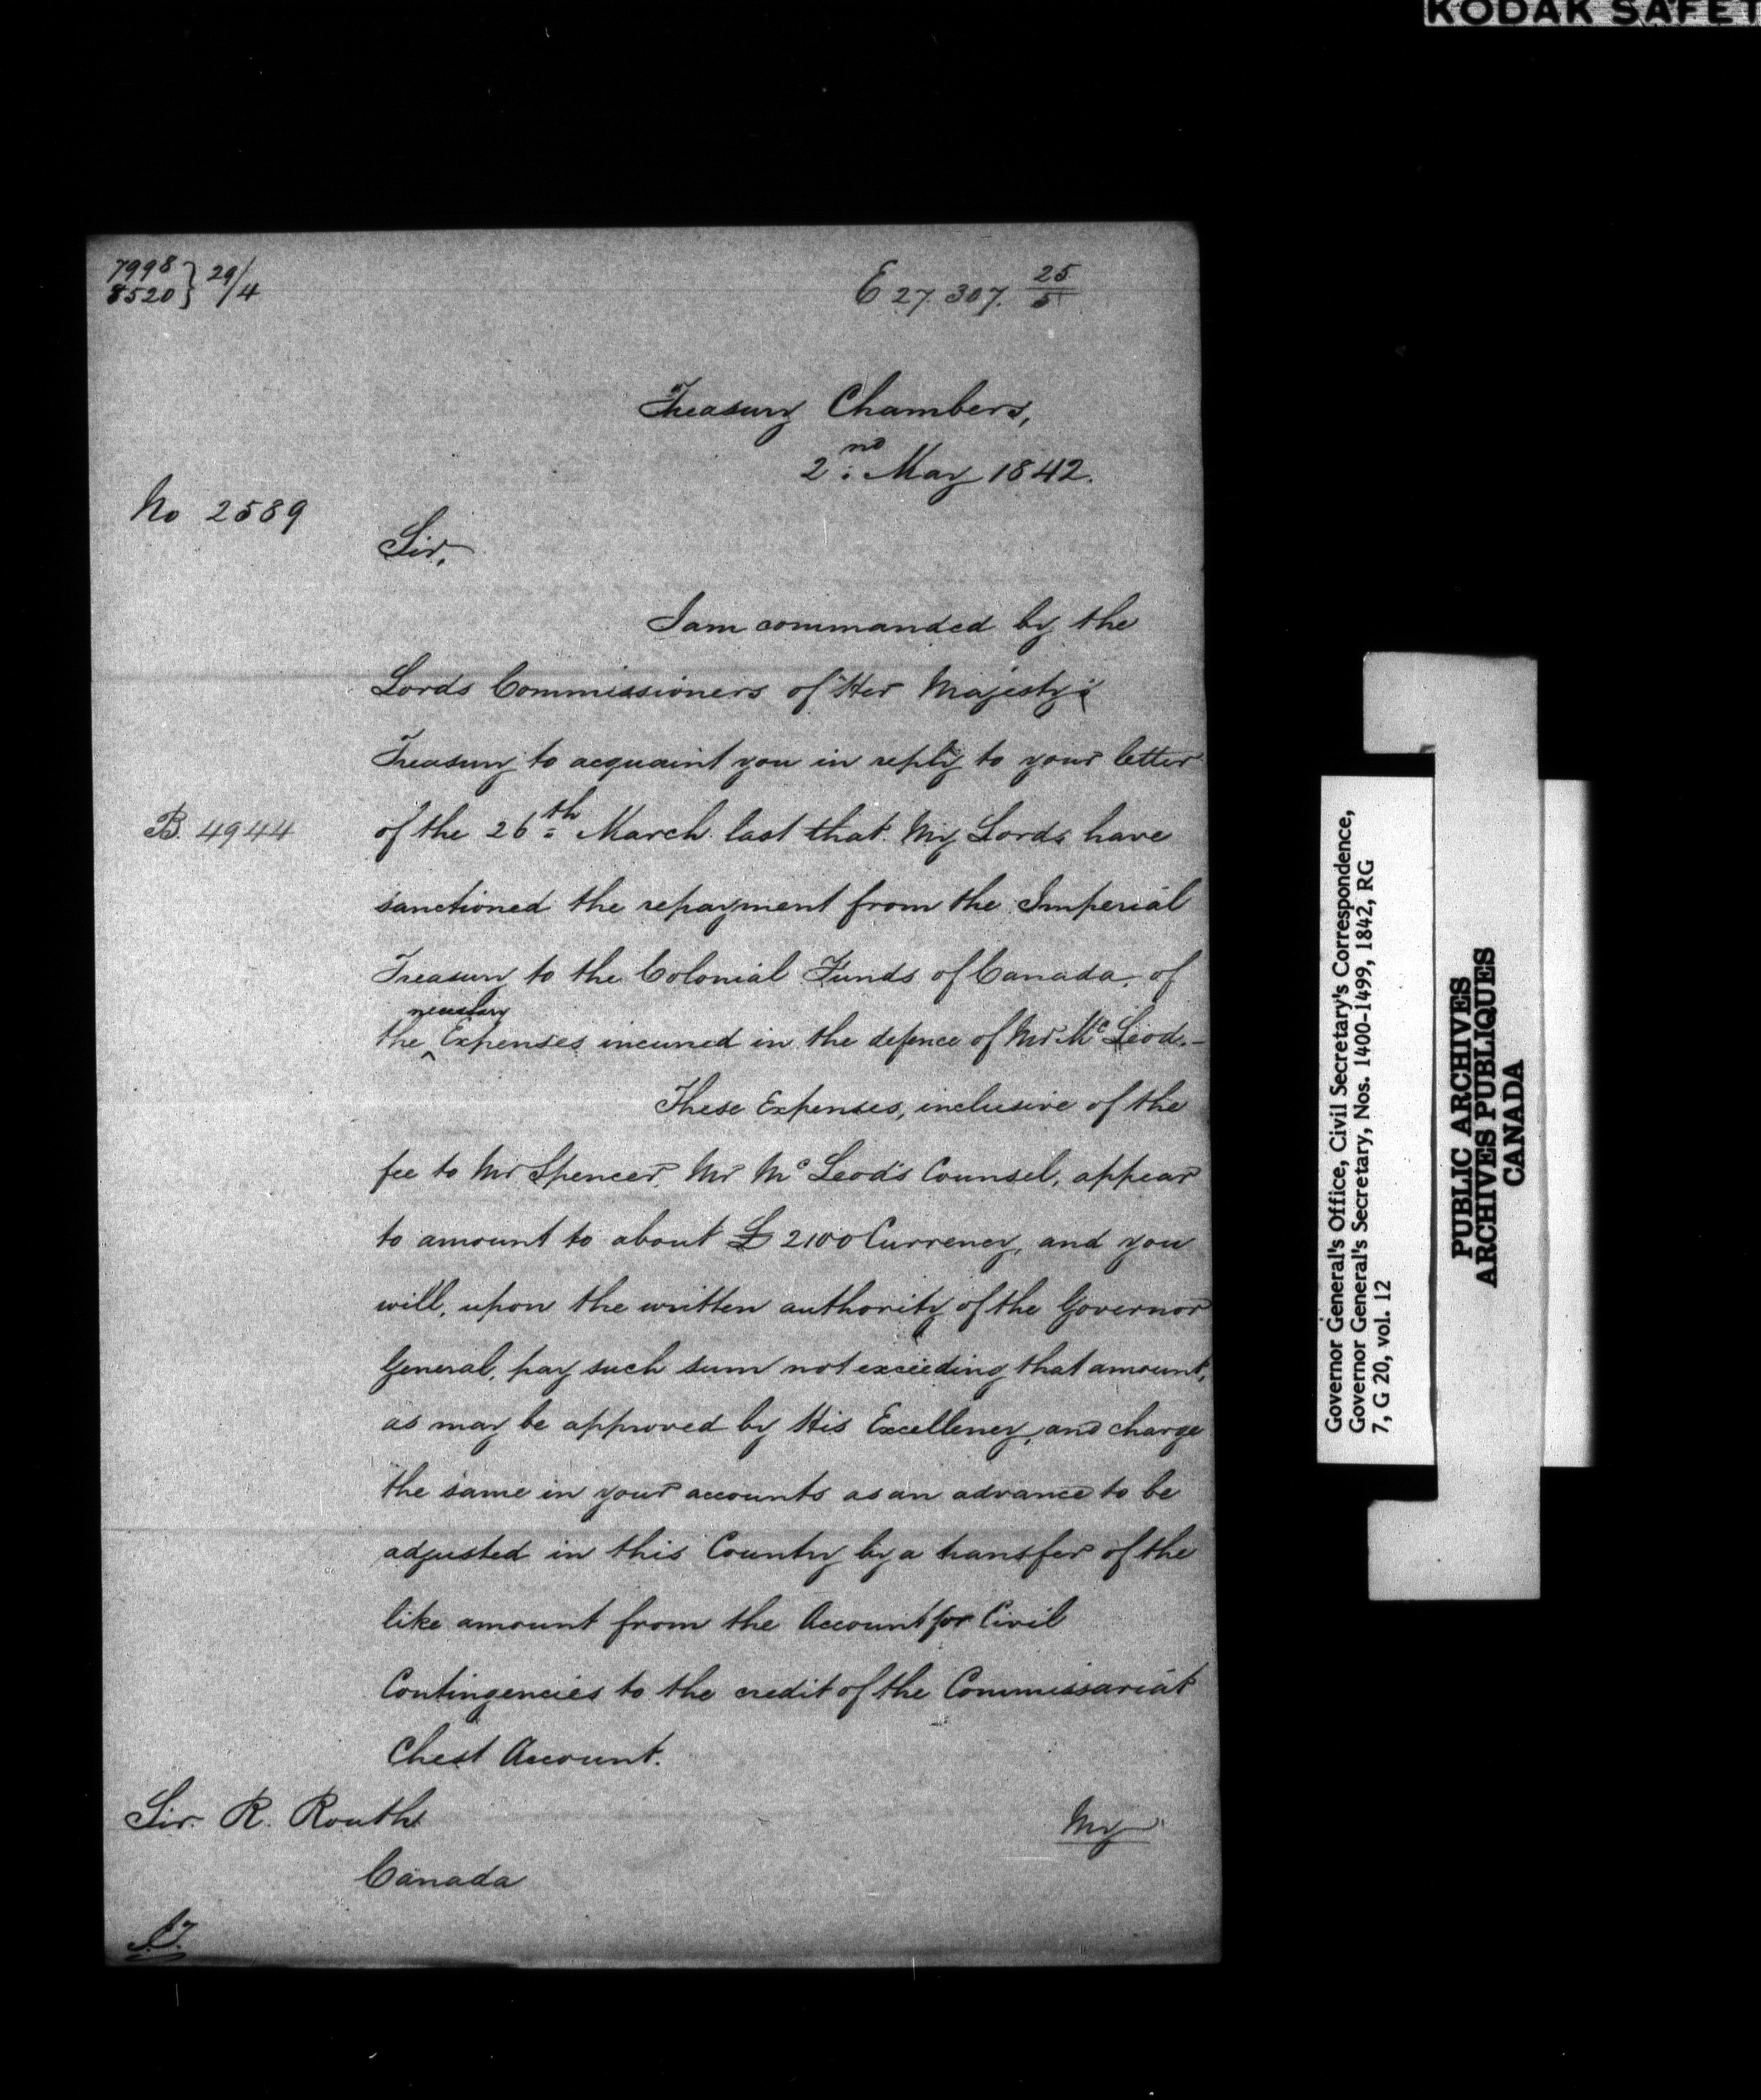 KODAK SAFET
7998 } 29/4
8520 }
E 27.307. 25/5
Treasury Chambers,
2nd May 1842.
No 2589
Sir,
I am commanded by the
Lords Commissioners of Her Majesty's
Treasury to acquaint you in reply to your letter
B. 4944
of the 26th March last that My Lords have
sanctioned the repayment from the Imperial
Treasury to the Colonial Funds of Canada, of
necessary
the ^ Expenses incurred in the defence of Mr McLeod.–
These Expenses, inclusive of the
fee to Mr Spencer, Mr McLeod's Counsel, appear
to amount to about £2100 Currency, and you
will, upon the written authority of the Governor
General, pay such sum not exceeding that amount,
as may be approved by His Excellency, and charge
the same in your accounts as an advance to be
adjusted in this Country by a transfer of the
like amount from the Account for Civil
Contingencies to the credit of the Commissariat
Chest Account.
Sir R. Routh
My
Canada
Governor General's Office, Civil Secretary's Correspondence,
Governor General's Secretary, Nos. 1400-1499, 1842, RG
7, G 20, vol. 12
PUBLIC ARCHIVES
ARCHIVES PUBLIQUES
CANADA